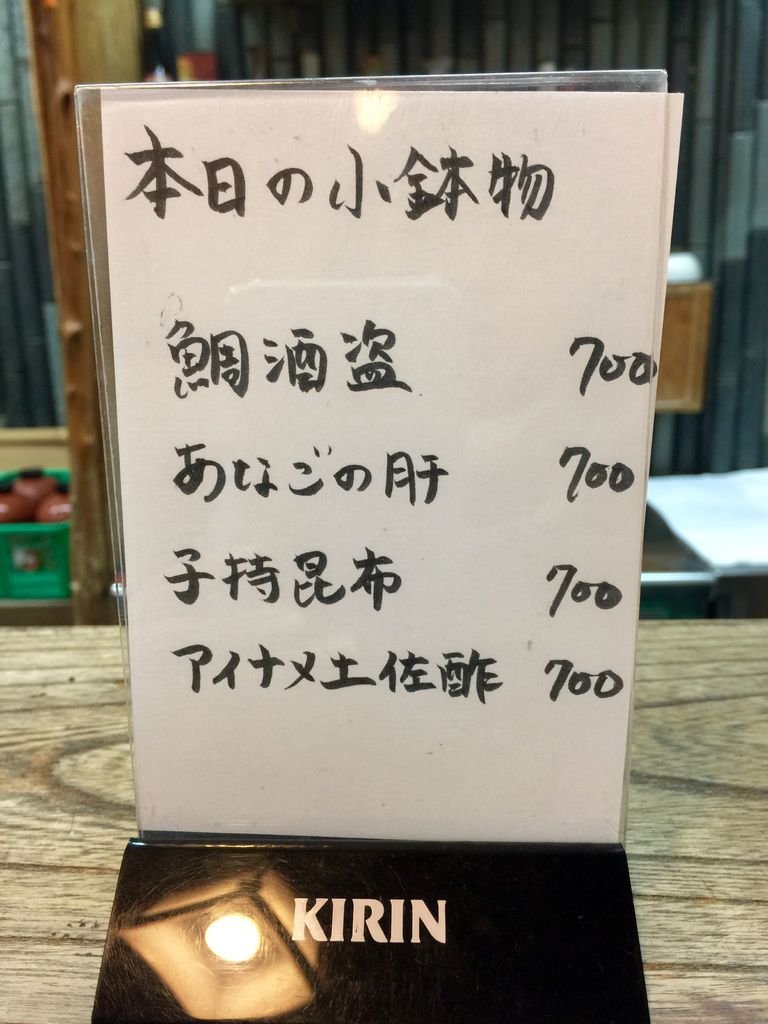 本日の小鉢物
鯛酒盗 700
あなごの肝 700
子持昆布 700
アイナメ土佐酢 700
KIRIN